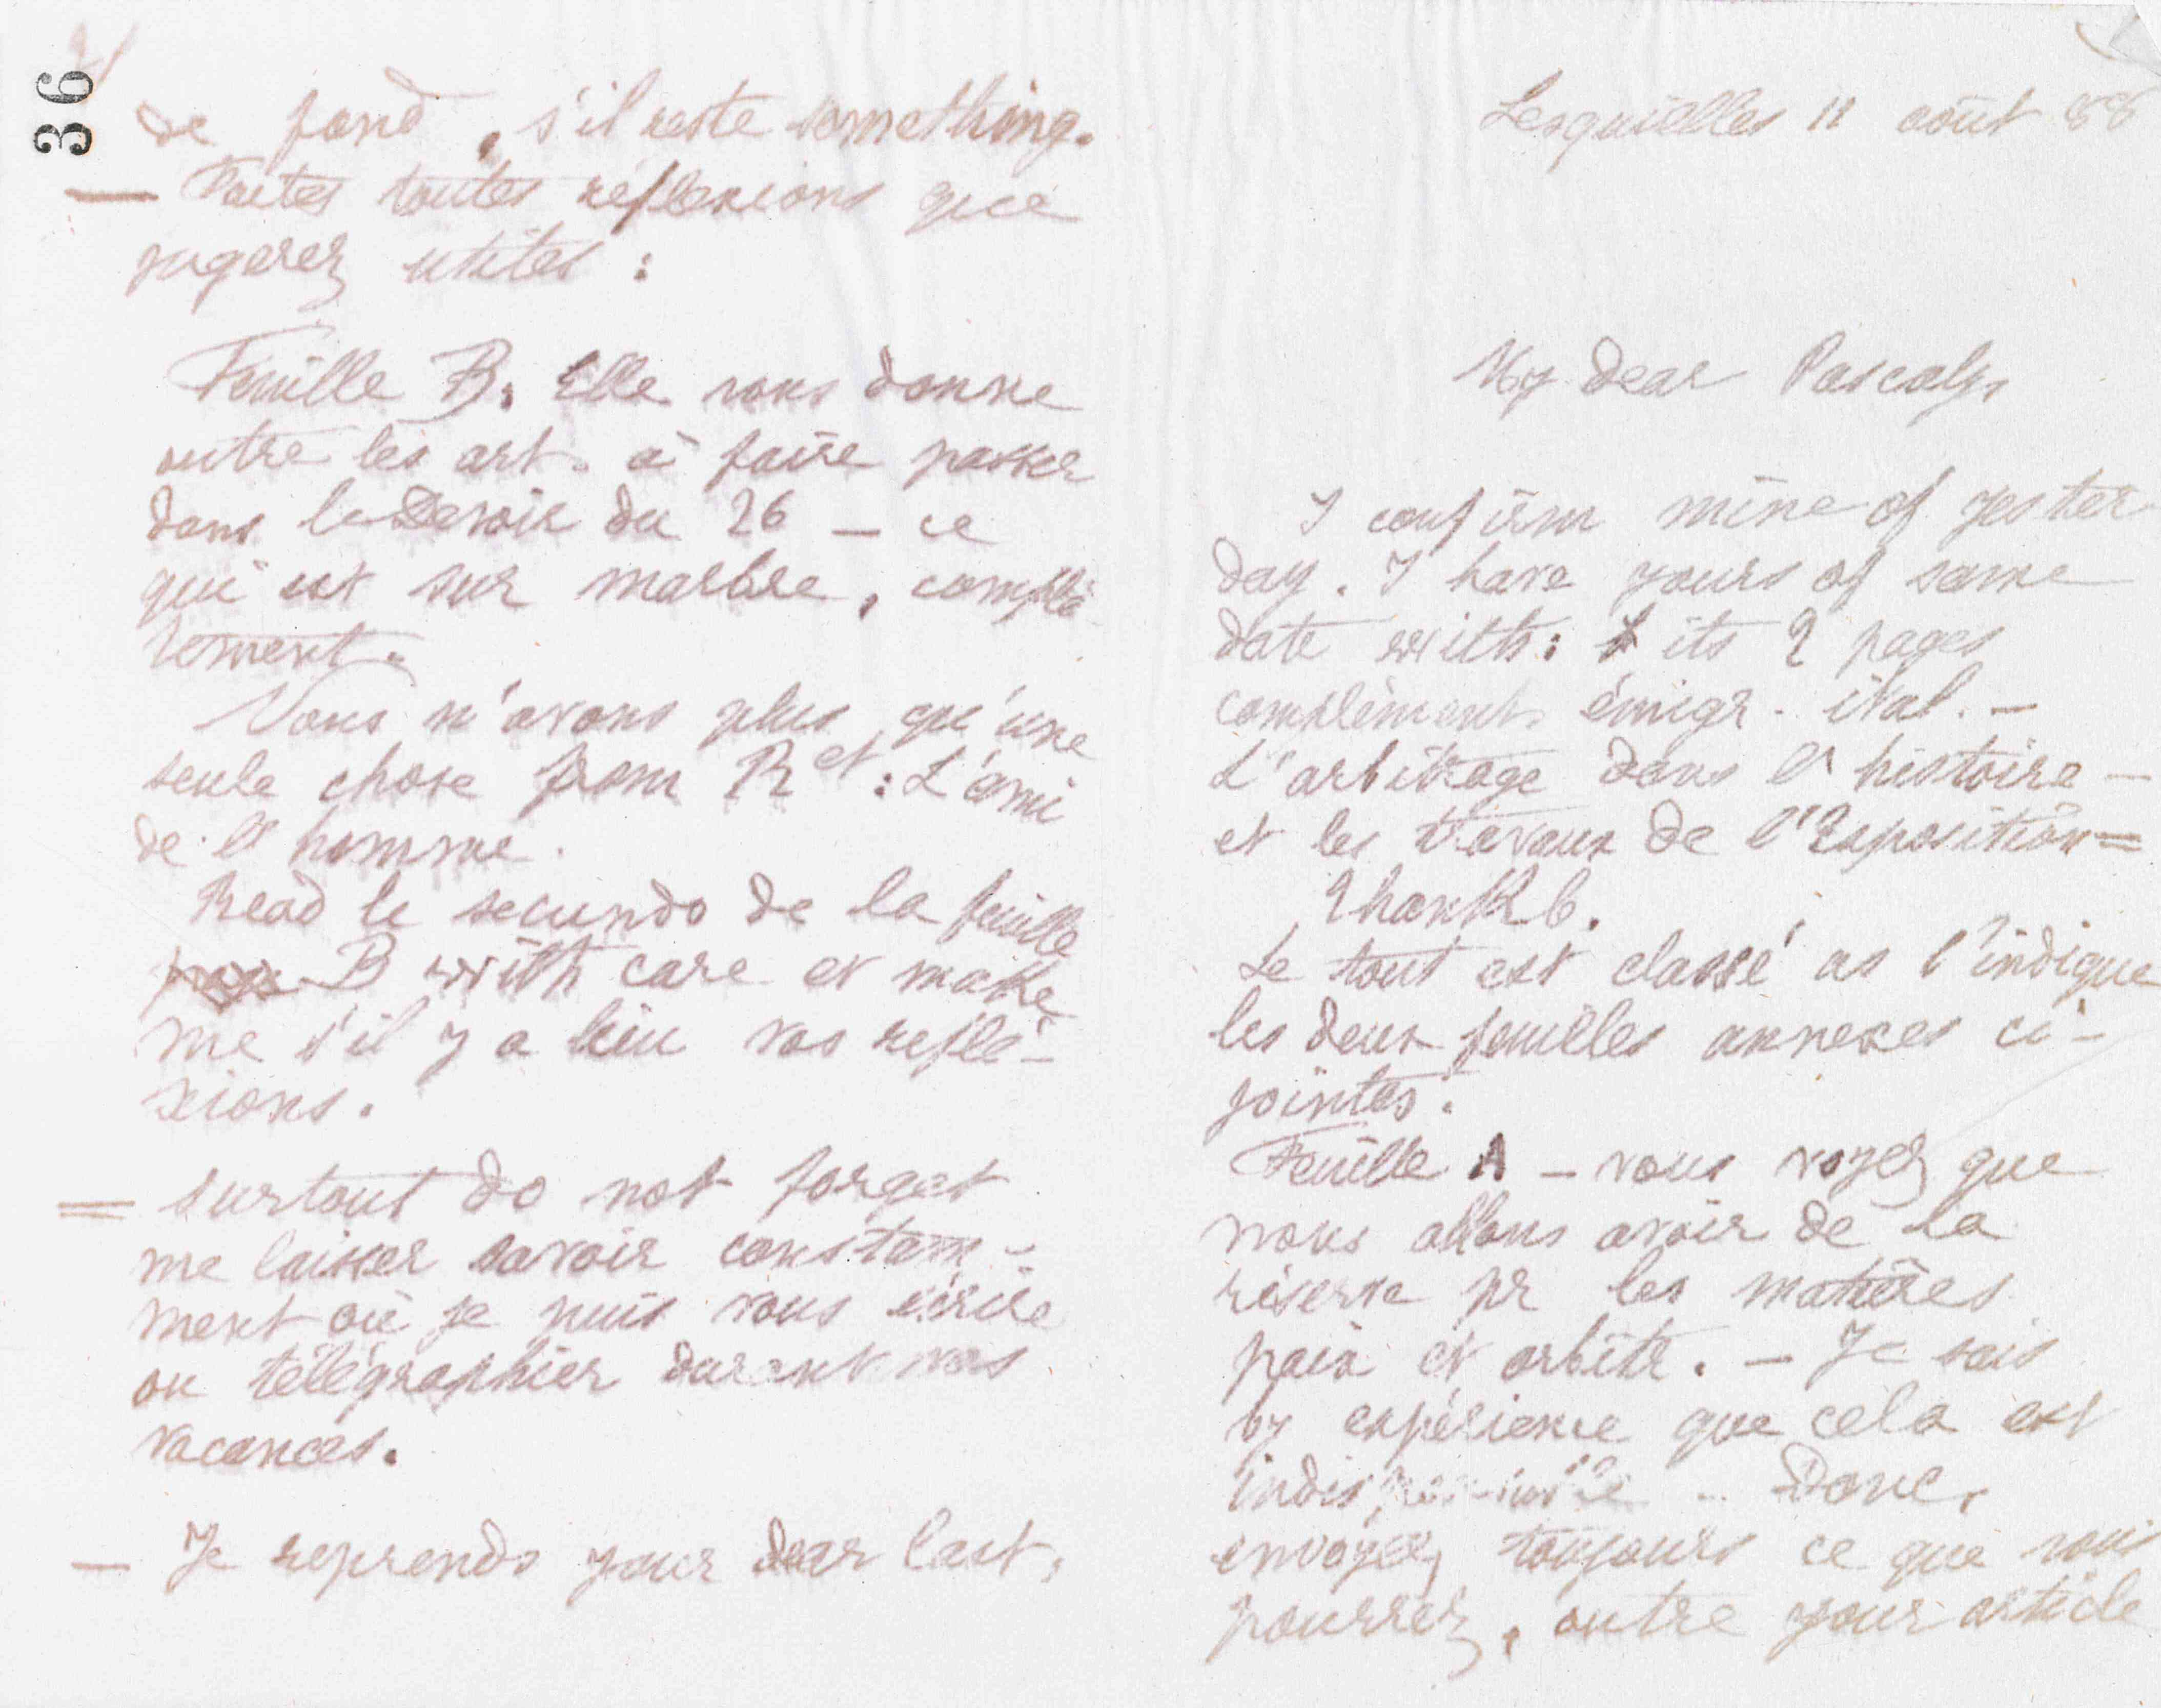 Lesquielles 11 août 88
My dear Pascaly,
I confirm mine of yester
day. I have yours of same
date with: its 2 pages
complément émigr. ital. —
L'arbitrage dans l'histoire —
et les travaux de l'Exposition =
Thank 6.
Le tout est classé as l'indique
les deux feuilles annexes ci-
jointes.
Feuille A — vous voyez que
nous allons avoir de la
réserve pr les matières
paix et arbitr. — Je sais
by expérience que cela est
indispensable — Donc,
envoyez toujours ce que vous
pourrez, outre your article
36
2/
de fond, s'il reste something.
— Faites toutes réflexions que
jugerez utiles :
Feuille B. Elle vous donne
outre les art. à faire passer
dans le Devoir du 26 — ce
qui est sur marbre, complè
tement.
Nous n'avons plus qu'une
seule chose from Ret : L'ami
de l'homme.
Read le secundo de la feuille
B with care et make
me s'il y a lieu vos réfle-
xions.
= Surtout do not forget
me laisser savoir constam-
ment où je puis vous écrire
ou télégraphier durant vos
vacances.
— Je reprends your dear last,